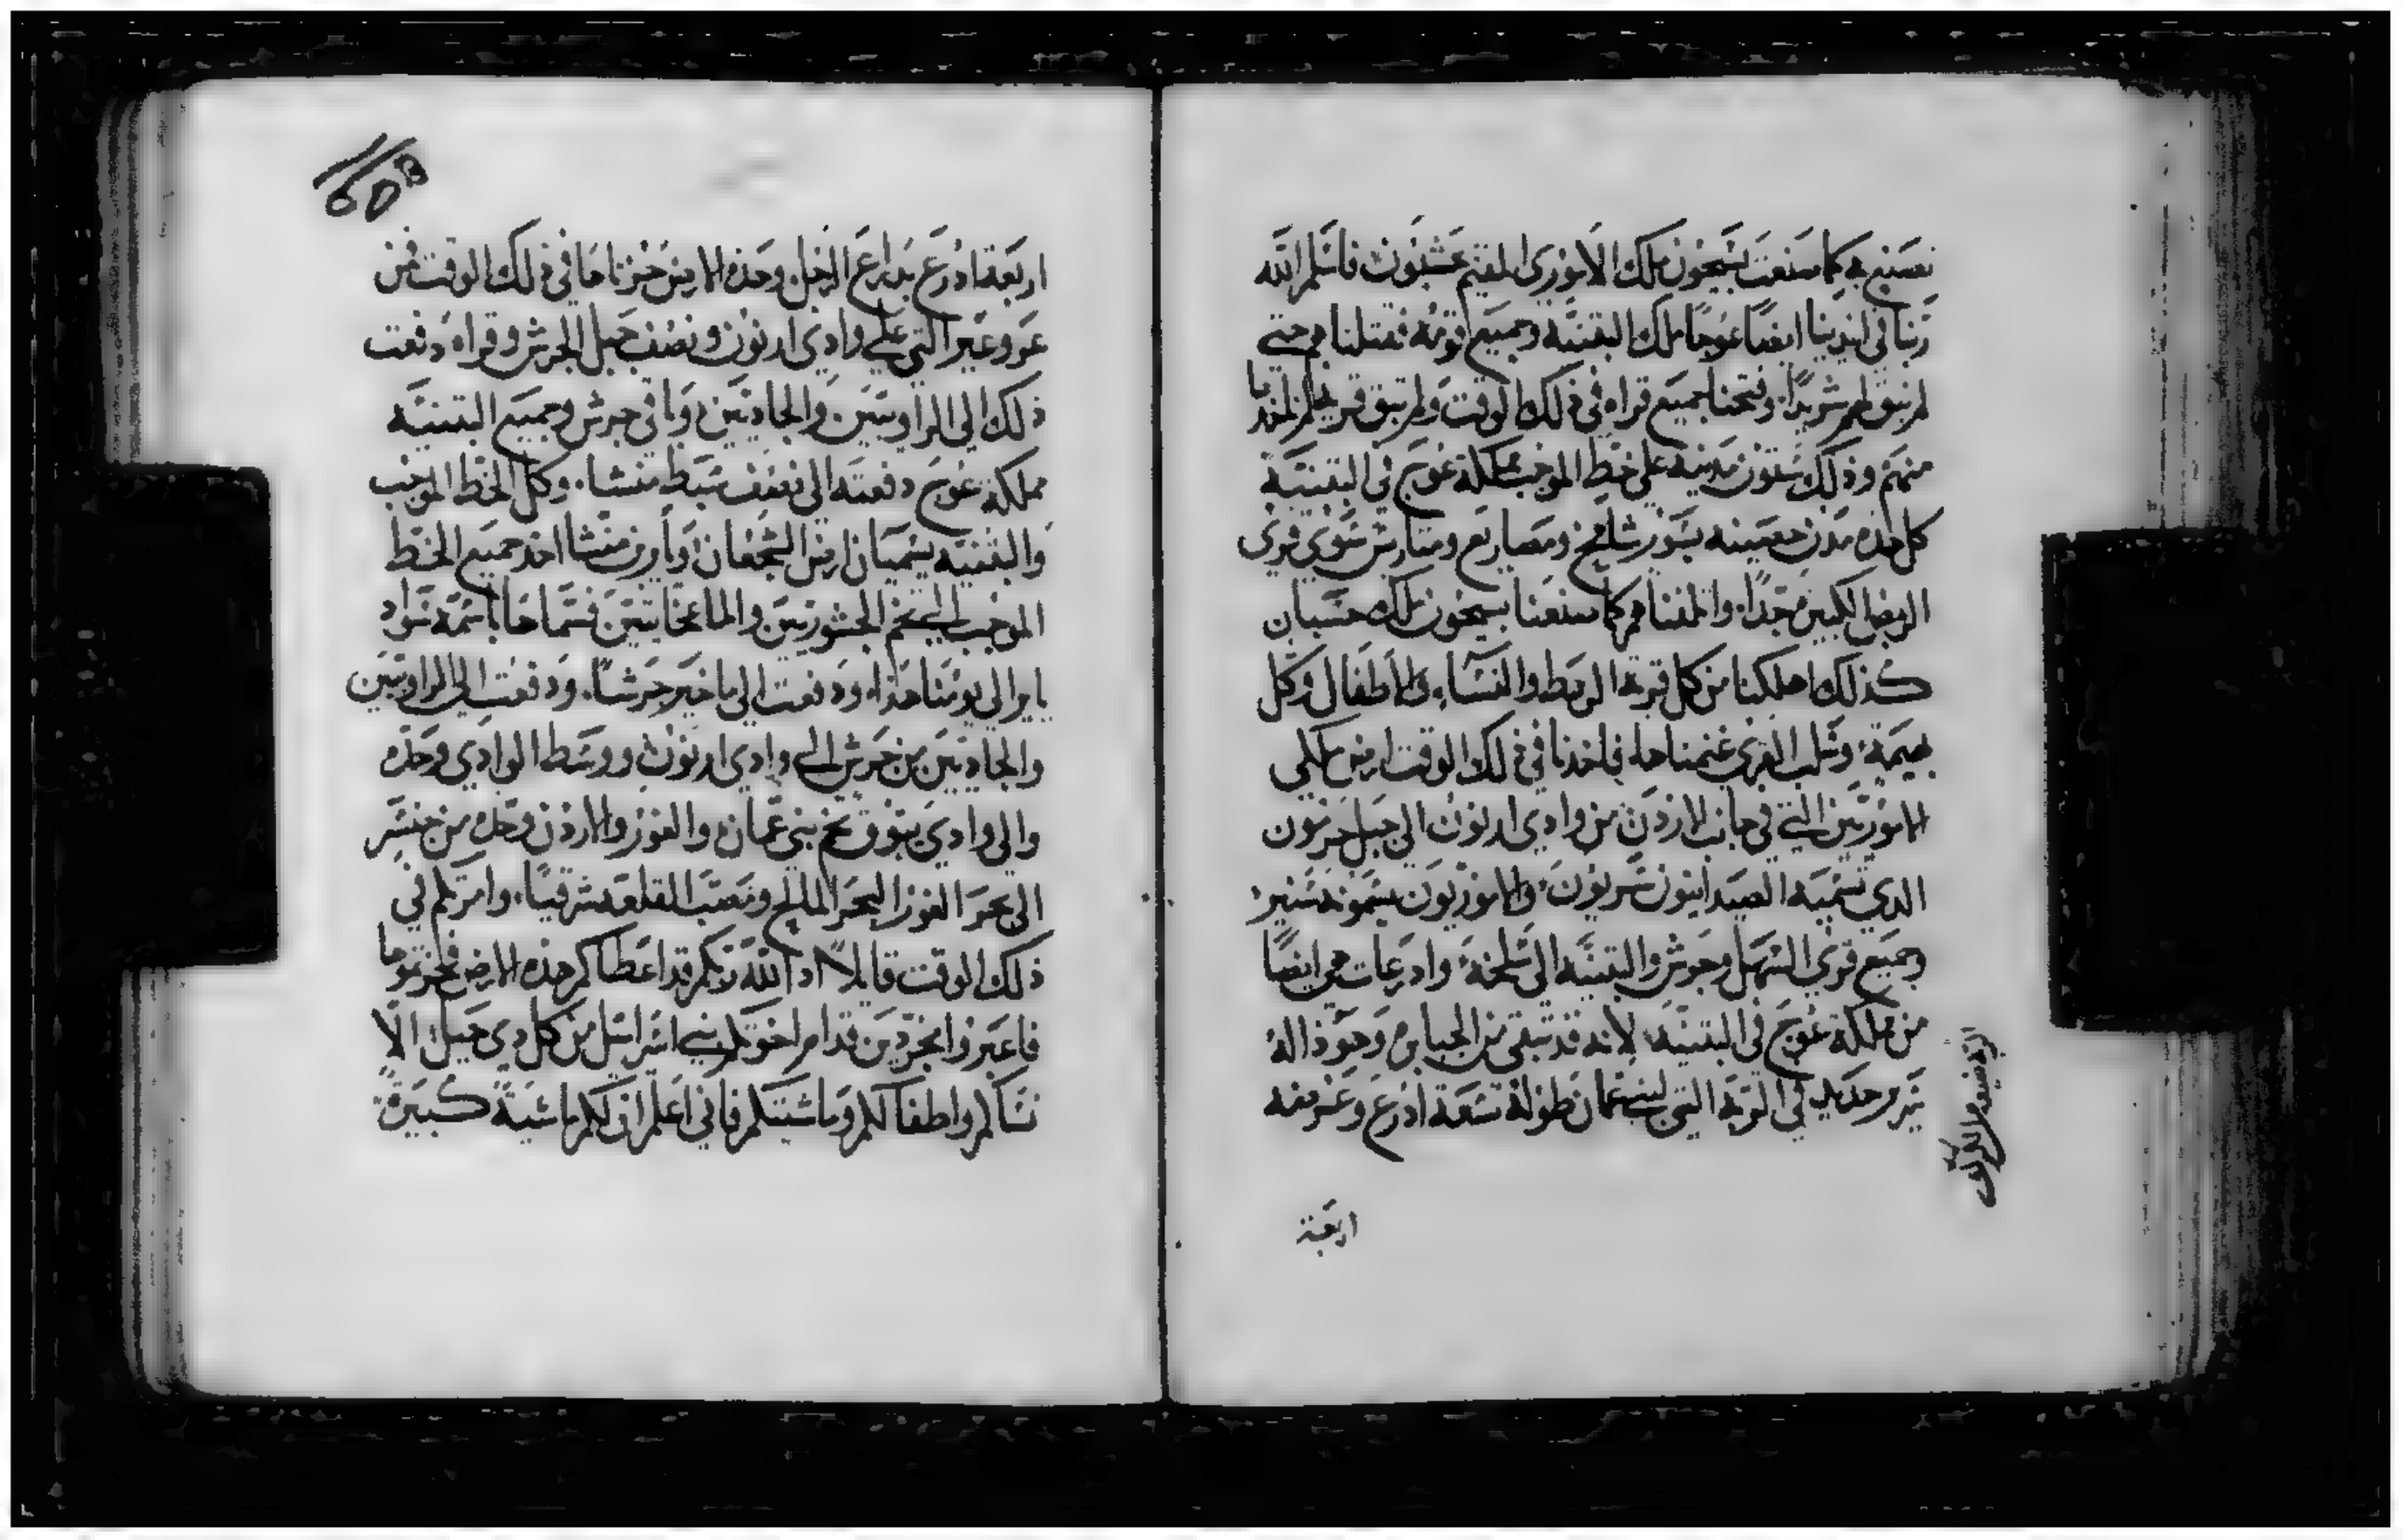 تصنع به كما صنعت بسيحون ملك الامورى المقيم عشبون فاسلم الله
ربنا في ايدينا ايضًا عوجًا ملك البقنيّة وجميع قومه فقتلناهم حتى
لم يبق لهم شريدًا. وفتحنا جميع قراه في ذلك الوقت ولم تبق قرية لم ناخدها
منهم وذلك ستون مدينة على خط الموجب مملكة عوج في البقنية
كل هذه مدن حصينه بسور شامخ ومصاريع ومتارس سوى قرى
الربض الكبيره جدًا. واتلفناهم كما صنعنا بسيحون ملك حسبان
كذلك اهلكنا من كل قرية الرهط والنساء والاطفال وكل
بهيمة وسلب القرى غنمناها فاخدنا في ذلك الوقت ارض ملكي
الاموريين التي في جانب الاردن من وادى ارنون الى جبل حرمون
الدي تسميه الصيدانيون سريون والاموريون يسمونه سنير
وجميع قرى السهل وجرش والبقنيّه الى سلخة وادرعات هي ايضًا
من مملكة عوج في البقنيّه لانه قد تبقى من الجبابره وهوذا له
سرير حديد في القرية التي لبني عمان طوله تسعة ادرع وعرضه
اربعة
اربعة ادرع بدراع الرجل وهذه الارض حزناها في ذلك الوقت فمن
عروعير التي على وادي ارنون ونصف جبل الجرش وقراه دفعت
ذلك الى الراوبيين والجاديين وباقي جرش وجميع البقنيّه
مملكة عوج دفعته الى نصف سبط منشا. وكل الخط الموجب
والبقنيّه يسميان ارض الشجعان وياير بن منشا اخد جميع الخط
الموجب الى تخم الجشوريين والماعخاتيين فسماها باسمه سواد
ياير الى يومنا هذا ودفعت الى ماخير جرشًا. ودفعت الى الراوبيين
والجاديين من جرش الى وادي ارنون ووسط الوادي وحده
والى وادي يبوق تخم بني عمان والغور والاردن وحده من جنسر
الى بحر الغور البحر المالح ومصب القلعة شرقيًا. وامرتكم في
ذلك الوقت قايلًا ان الله ربكم قد اعطاكم هذه الارض فحوزوها
فاعبروا مجردين قدام اخوتكم بني اسراييل من كل دي حيل الّا
نساكم واطفالكم وماشيتكم فاني اعلم ان لكم ماشية كبيرة